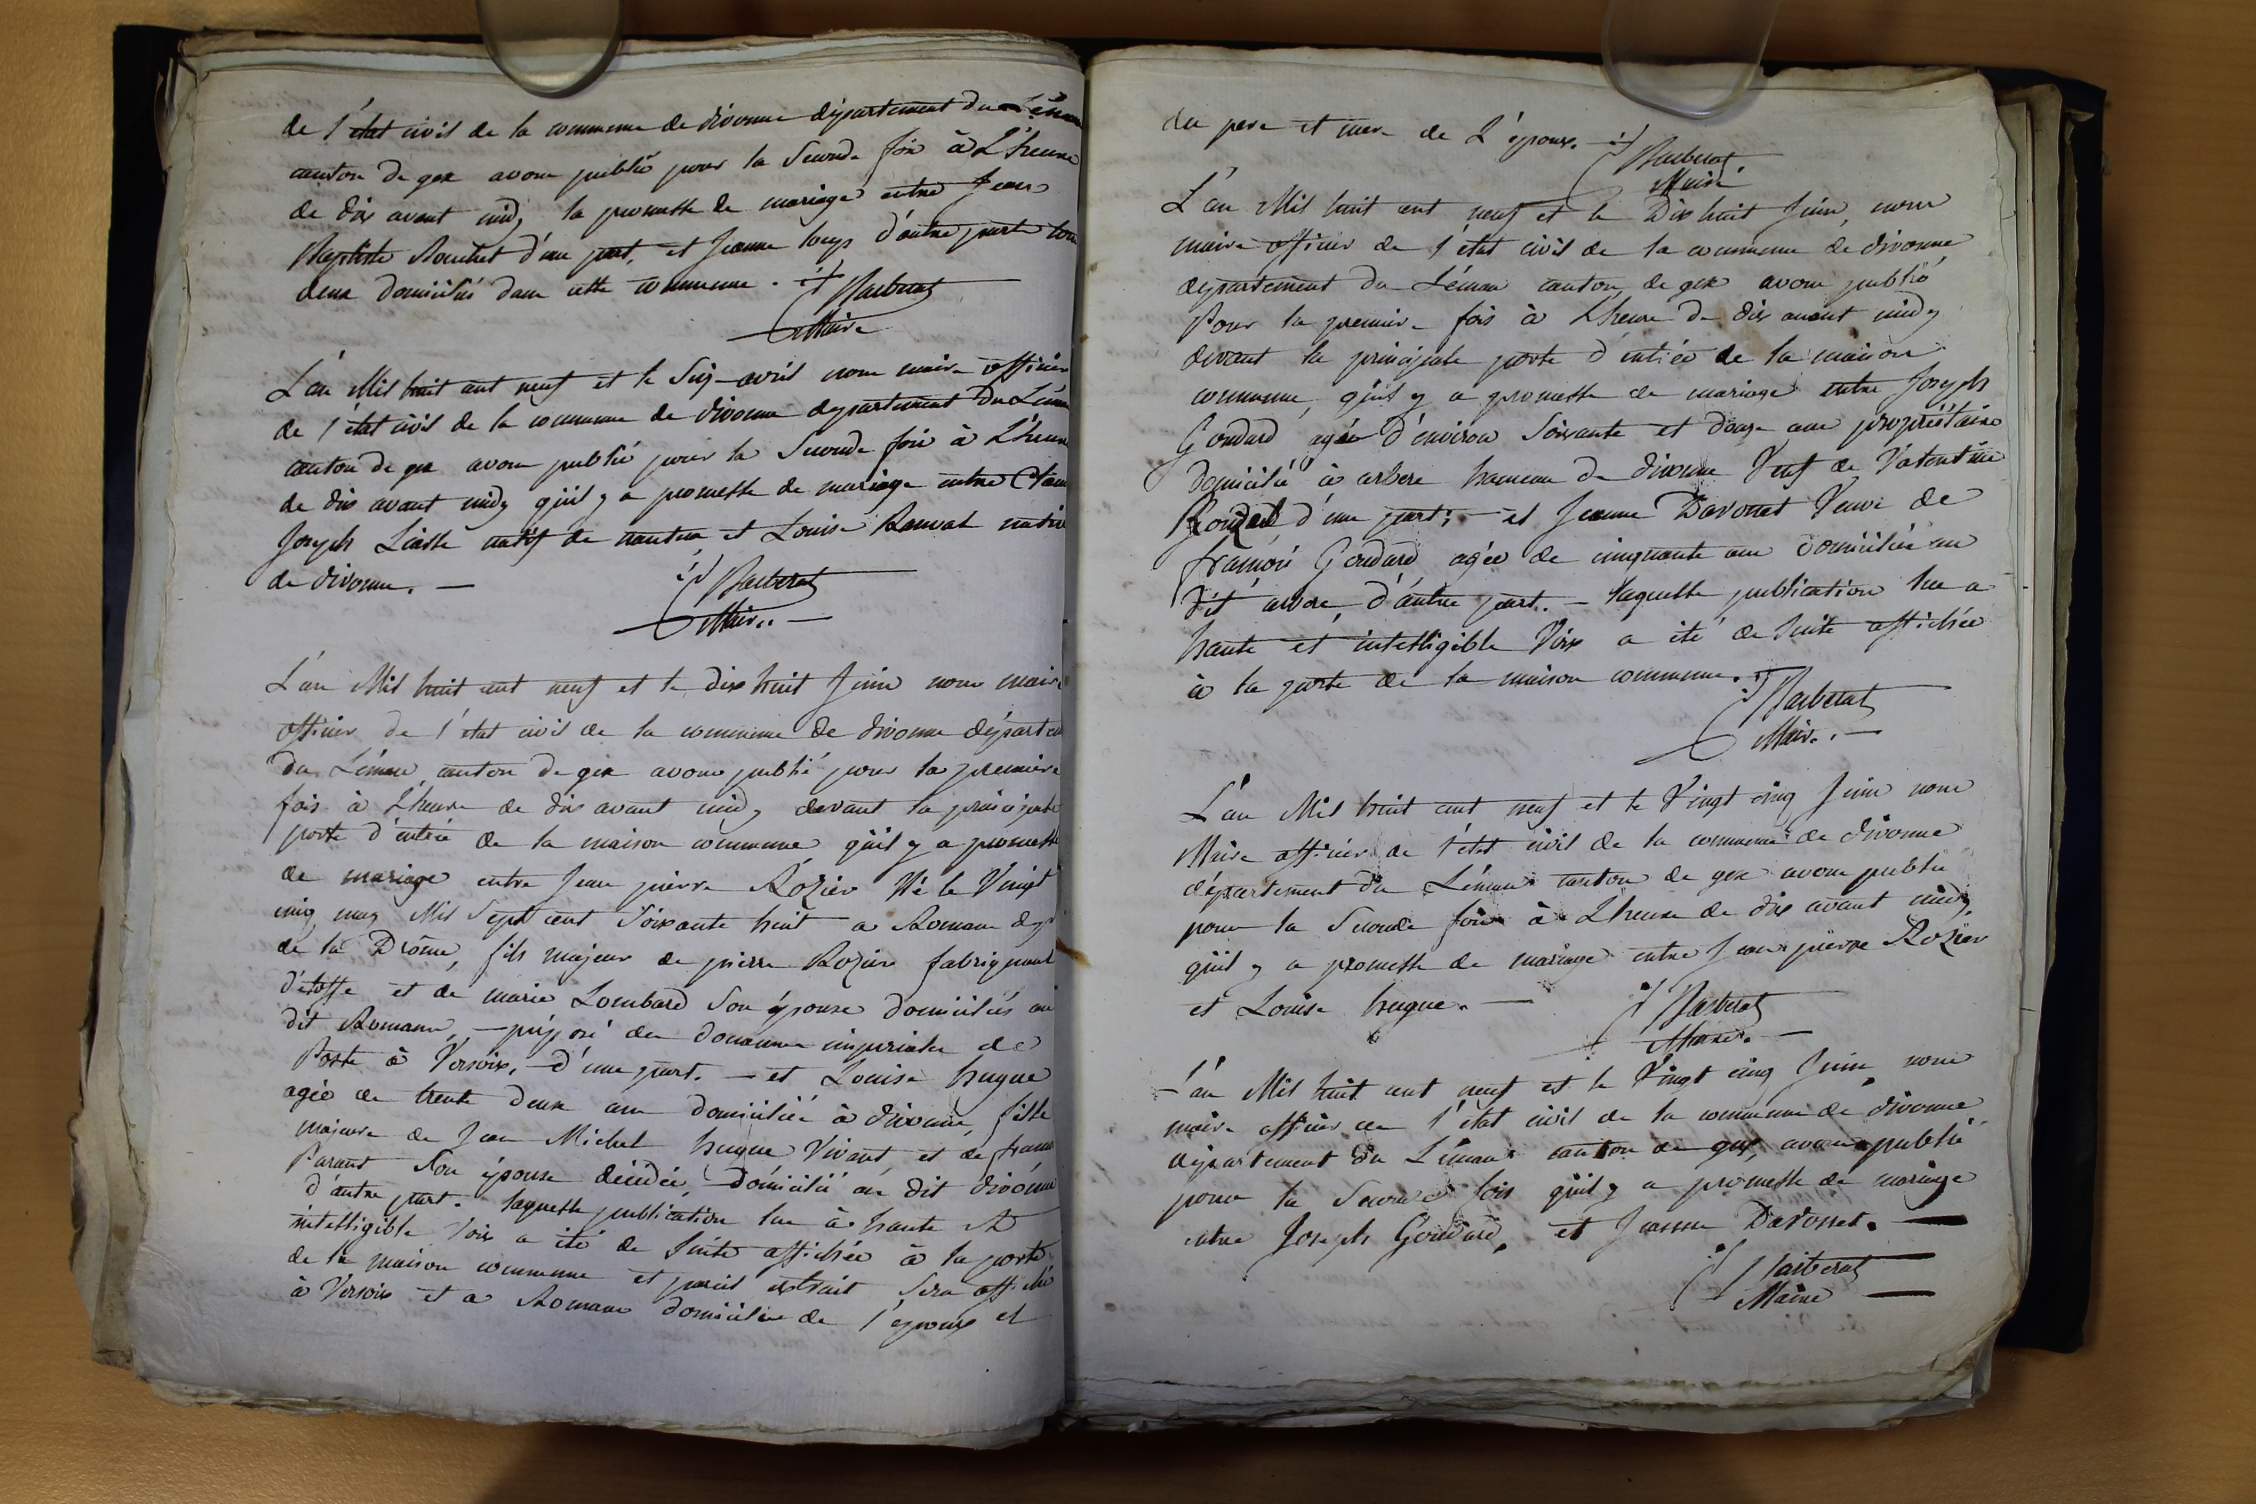 de l'état civil de la commune de divonne département du Léman
canton de gex avons publié pour la Seconde fois à L'heure
de dix avant midy la promesse de mariage entre Jean
Baptiste Rouchet d'une part, et Jeanne d'autre part tous
deux domiciliés dans cette commune. Barberat
Maire
L'an Mil huit cent neuf et le Six avril nous maire officier
de l'état civil de la commune de divonne département du Léman
canton de gex avons publié pour la Seconde fois à L'heure
de dix avant midy qu'il y a promesse de mariage entre
Joseph Liasse natif de nantua et Louise native
de divonne. Barberat
Maire
L'an Mil huit cent neuf et le dix huit Juin nous maire
officier de l'état civil de la commune de divonne départ
du Léman, canton de gex avons publié pour la premiere
fois à L'heure de dix avant midy devant la principale
porte d'entrée de la maison commune qu'il y a promesse
de mariage entre Jean pierre Rozier Né le Vingt
cinq may Mil Sept cent Soixante huit a Romans dept
de la Drôme, fils majeur de pierre Rozier fabriquant
d'étoffe et de marie Lombard Son épouse domiciliés au
dit Romans, préposé des douannes imperiales de
Poste à Versoix, d'une part. et Louise hugue
agée de trente deux ans domiciliée à divonne, fille
majeure de Jean Michel hugue Vivant et de
Parant Son épouse décédée, domicilié au dit divonne
d'autre part. laquelle publication lue à haute et
intelligible Voix a été de Suite affichée à la porte
de la maison commune et pareil extrait Sera affiché
à Versoix et a Romans domicilie de l'époux et
du pere et mere de L'époux. Barberat
Maire
L'an Mil huit cent neuf et le Dix huit Juin, nous
maire officier de l'état civil de la commune de divonne
département du Léman canton de gex avons publié
Pour la premiere fois à L'heure de dix avant midy
devant la principale porte d'entrée de la maison
commune, qu'il y a promesse de mariage entre Joseph
Goudard agée d'environ Soixante et douze ans propriétaire
domicilié à arbere hameau de divonne Veuf de Valentine
d'une part; et Jeanne Davonet Veuve de
françois Goudard agée de cinquante ans domiciliée au
dit arbere, d'autre part. laquelle publication lue a
haute et intelligible Voix a été de Suite affichée
à la porte de la maison commune. Barberat
Maire.
L'an Mil huit cent neuf et le Vingt cinq Juin nous
Maire officier de l'état civil de la commune de divonne
département du Léman canton de gex avons publié
pour la Seconde fois à L'heure de dix avant midy,
qu'il y a promesse de mariage entre Jean pierre Rozier
et Louise hugue. Barberat
Maire.
L'an Mil huit cent neuf et le Vingt cinq Juin, nous
maire officier de l'état civil de la commune de divonne
département du Léman canton de gex, avons publié
pour la Seconde fois qu'il y a promesse de mariage
entre Joseph Goudard, et Jeanne Davonet.
Barberat
Maire